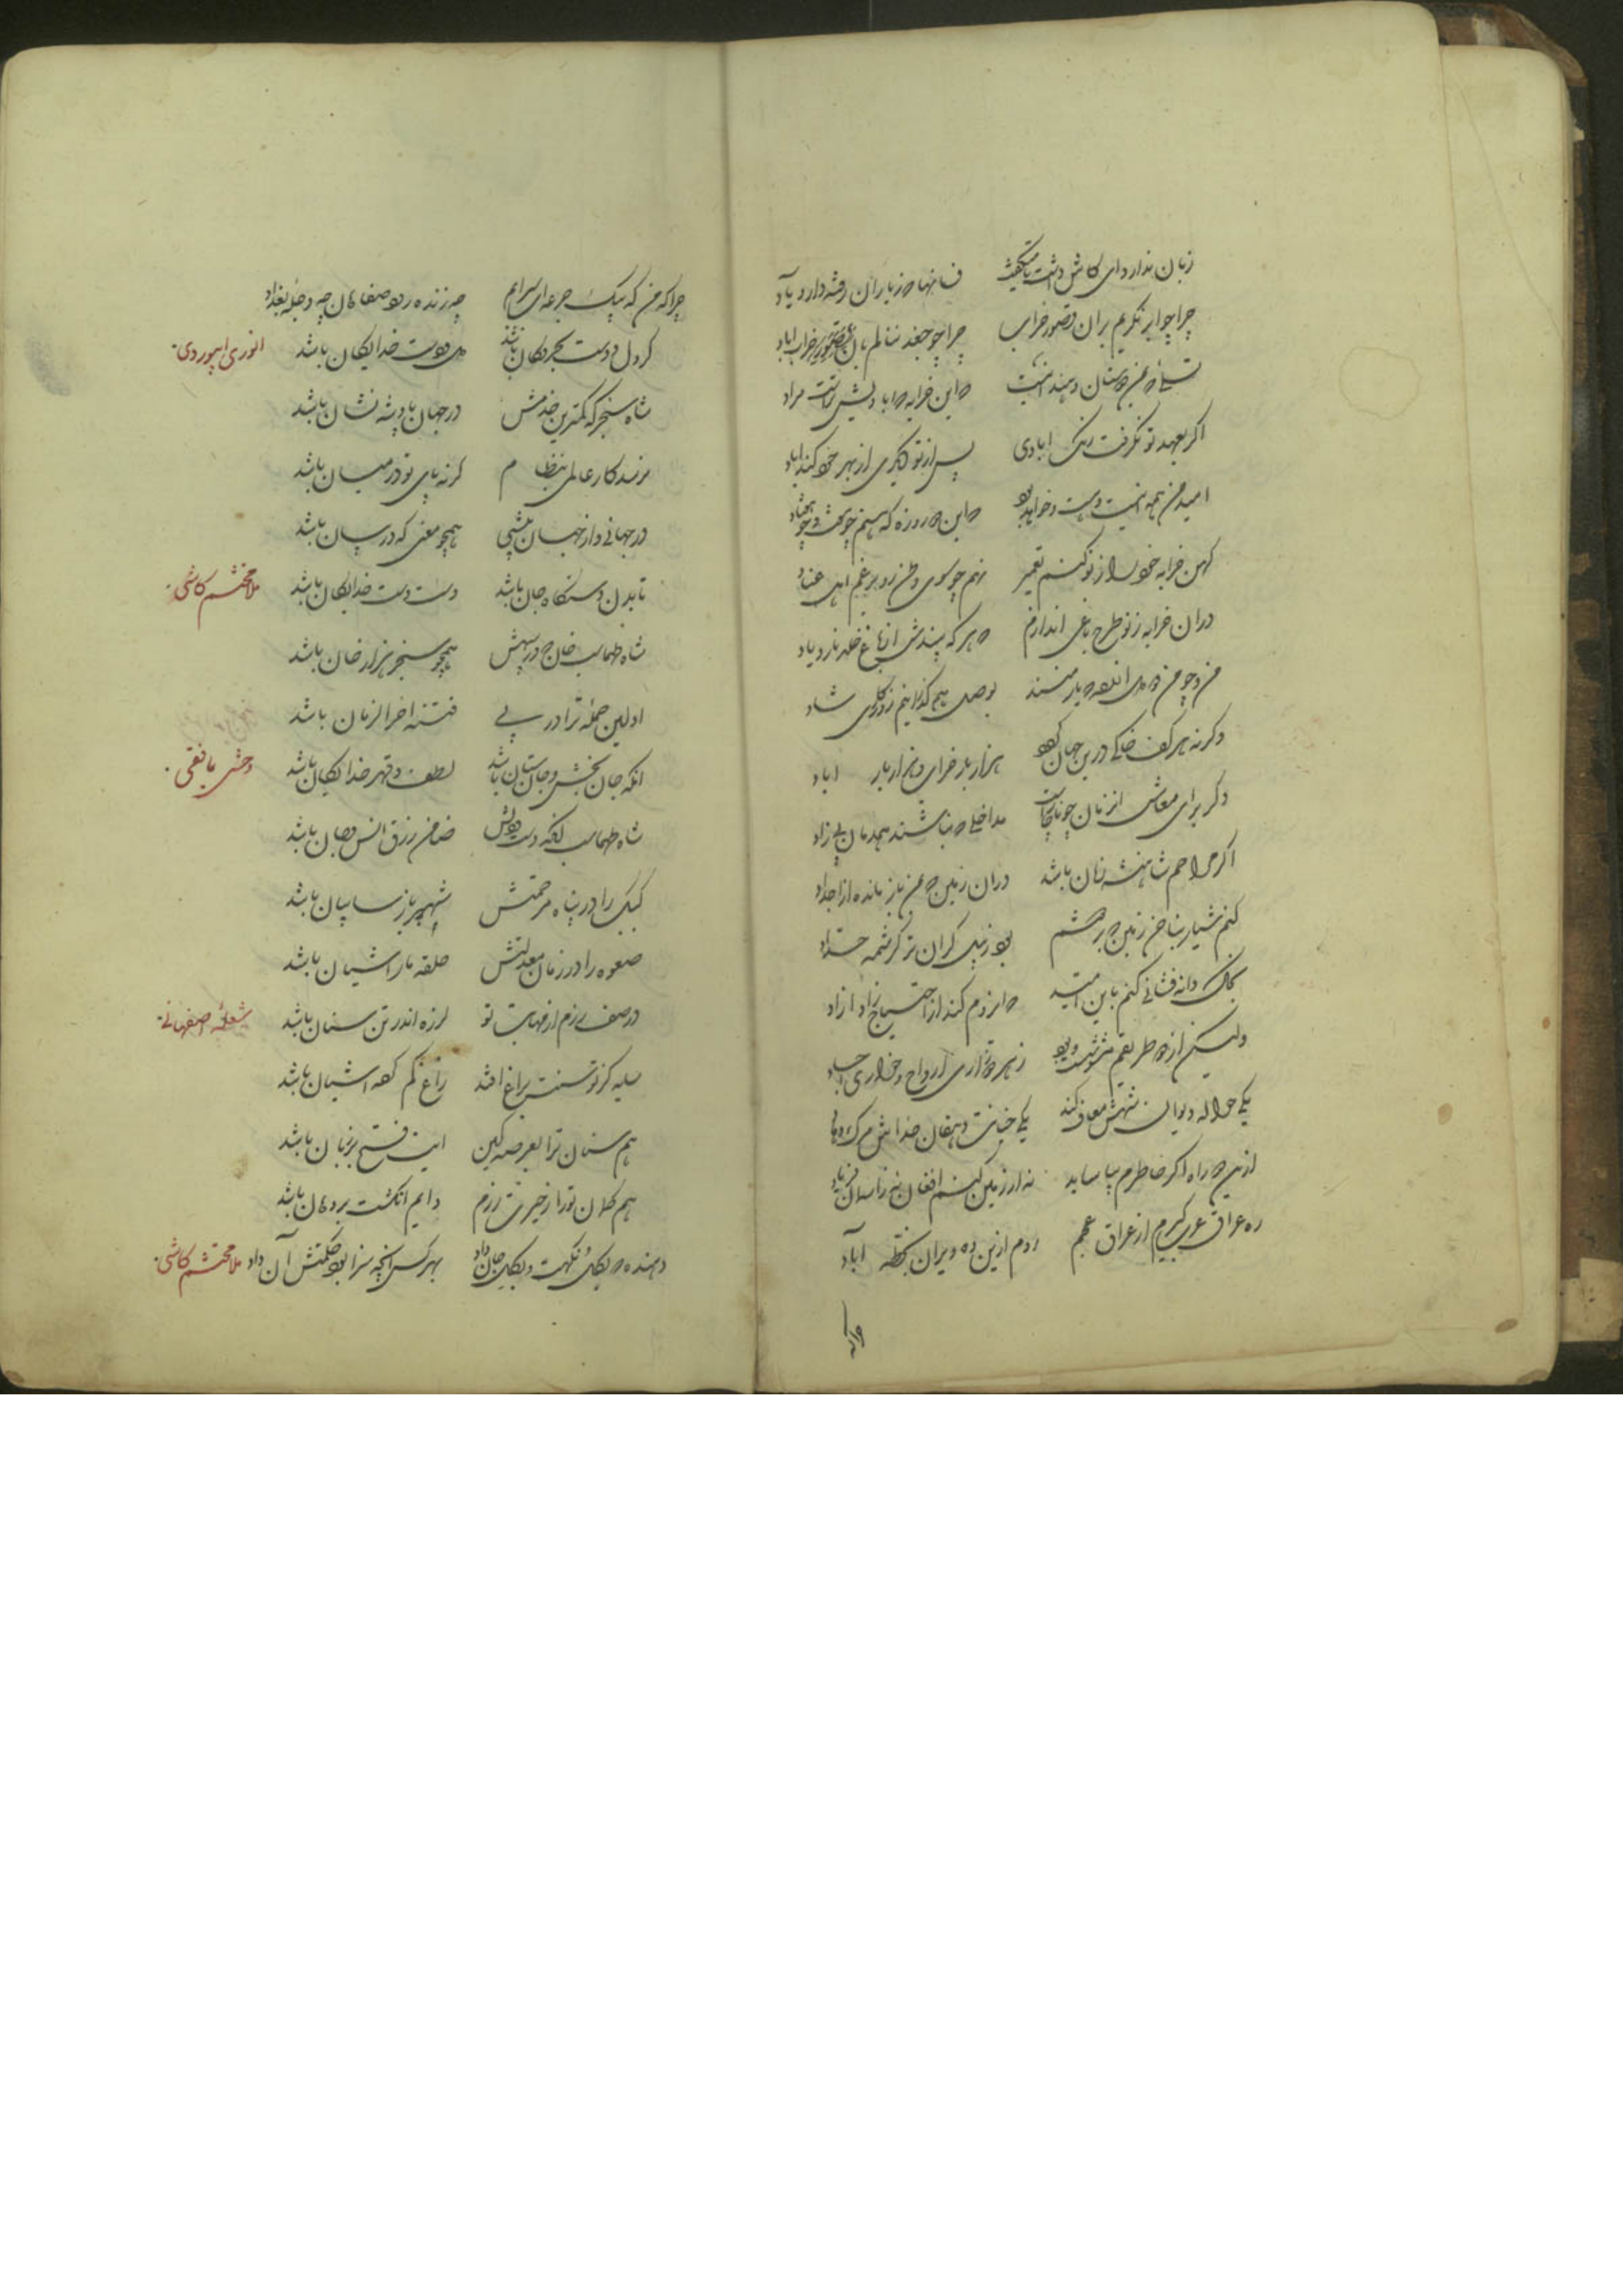 زبان ندارد ای کاش داشت تا میگفت فسانها که ز یاران رفته دارد یاد
چرا چو ابر نگریم بران قصور خراب چرا چو جغد ننالم بان خراب اباد
تسلی من دهند این است که این خرابه که اباد نیش مراد
اگر بعهد تو نگرفت رنگ ابادی پس از تو دیگری از بهر خود کند اباد
امید من همه نیست و هست و خواهد بود که این دو روزه که هستم
کهن خرابه خود را ز نو کنم تعمیر نهم چو سوی وطن رو برغم اهل عناد
دران خرابه ز نو طرح باغی اندازم که هر که بیندش از باغ خلد نارد یاد
من و چو من دو سه که یار منند بوصل هم گذرانیم روزگاری شاد
وگرنه هر کف خاکی درین جهان بود هزار بار خراب و هزار بار اباد
دگر برای معاش مداخلی که نباشند همدمان بی زاد
اگر مراحم شاهنشه زمان باشد دران زمین که بمن باز مانده از اجداد
کنم شیار بناخن زمین بود زبیل گران تر کرشمه حداد
بخاک دانه فشانی کنم باین امید که مردم کند از احتیاج زاد ازاد
ولیکن از دو طریقم مشوش
یکی حواله دیوان شهش معاف کند یکی خیانت دهقان خداش مرگ دهاد
ازین دو راه اگر خاطرم بیاساید نه از زمین کنم افغان نه ز اسمان فریاد
ره عراق عرب گیرم از عراق عجم روم ازین ده ویران بخطه اباد
چرا که من که بیک جرعه ای سرابم چه زنده رود صفاهان چه دجله بغداد
گر دل و دست بحر و کان باشد دل و دست خدایگان باشد انوری ابیوردی
شاه سنجر که کمترین خدمش در جهان پادشه نشان باشد
نرسد کار عالمی بنظام گرنه پای تو در میان باشد
در جهانی و از جهان بیشی همچو معنی که در بیان باشد
تا بدن دستگاه جان باشد دست دست خدایگان باشد ملا محتشم کاشی
شاه طهماسب خان که در سپهش همچو سنجر هزار خان باشد
اولین حمله ترا در پی فتنه اخر الزمان باشد
انکه جان بخش و جان ستان باشد لطف و قهر خدایگان باشد وحشی بافقی
شاه طهماسب انکه دست و دلش ضامن رزق انس و جان باشد
کبک را در پناه مرحمتش شهپر باز سایبان باشد
صعوه را در زمان معدلتش حلقه مار اشیان باشد
در صف رزم از مهابت تو لرزه اندر تن سنان باشد شعله اصفهانی
سایه کز توسنت براغ افتد زاغ کم کرده اشیان باشد
هم سنان ترا بعرصه کین ایت فتح بر زبان باشد
هم کمان تو را ز حیرت رزم دایم انگشت بر دهان باشد
دهنده که بگل نکهت و بگل جان داد بهر کس انچه سزا بود حکمتش آن داد ملا محتشم کاشی